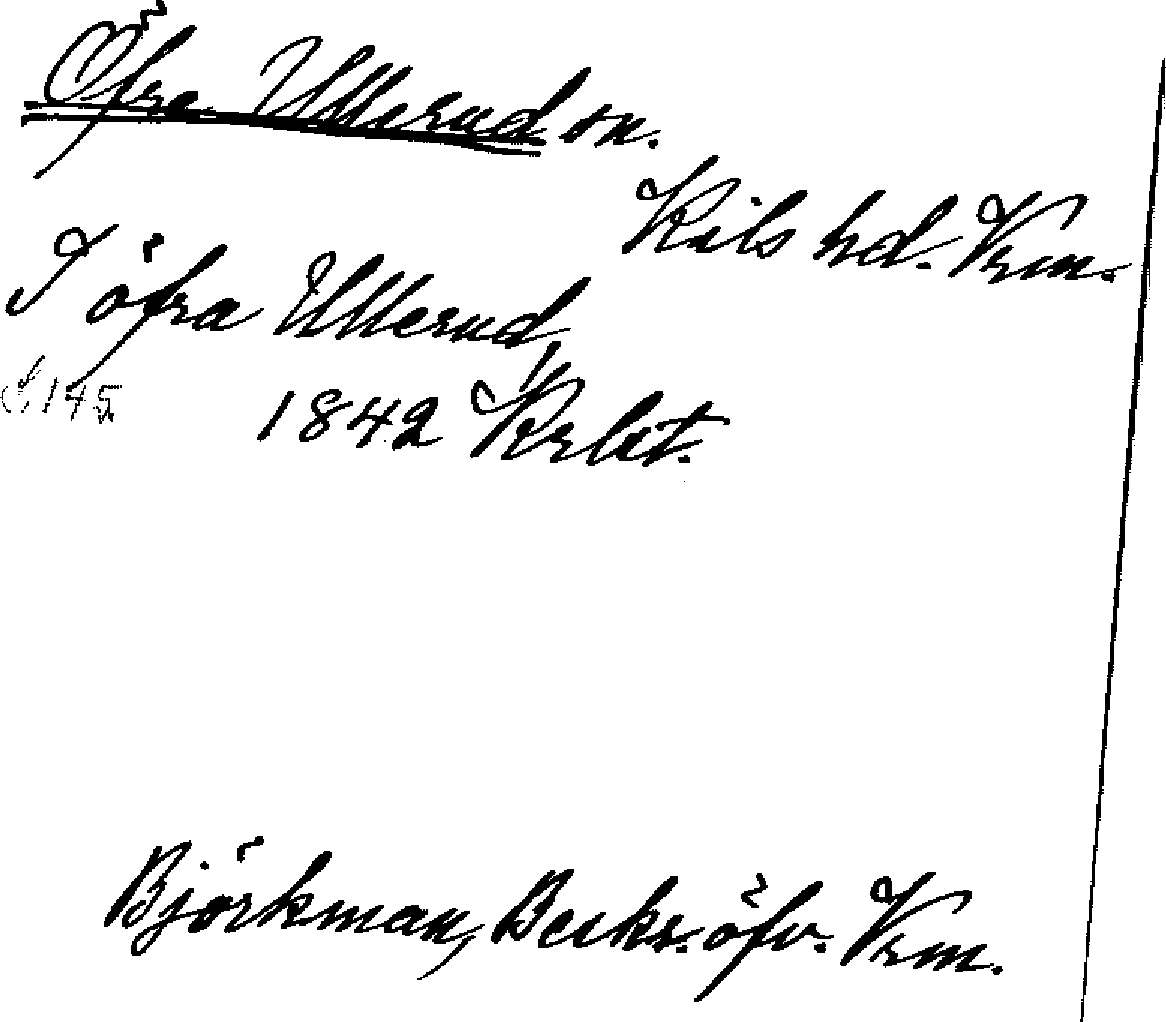 Öfre Ullerud sn.
Kils hd. Vrm.
I öfra Ullerud,
S. 145 1842 Krlbt.
Björkman, Beskr. öfv. Vrm.